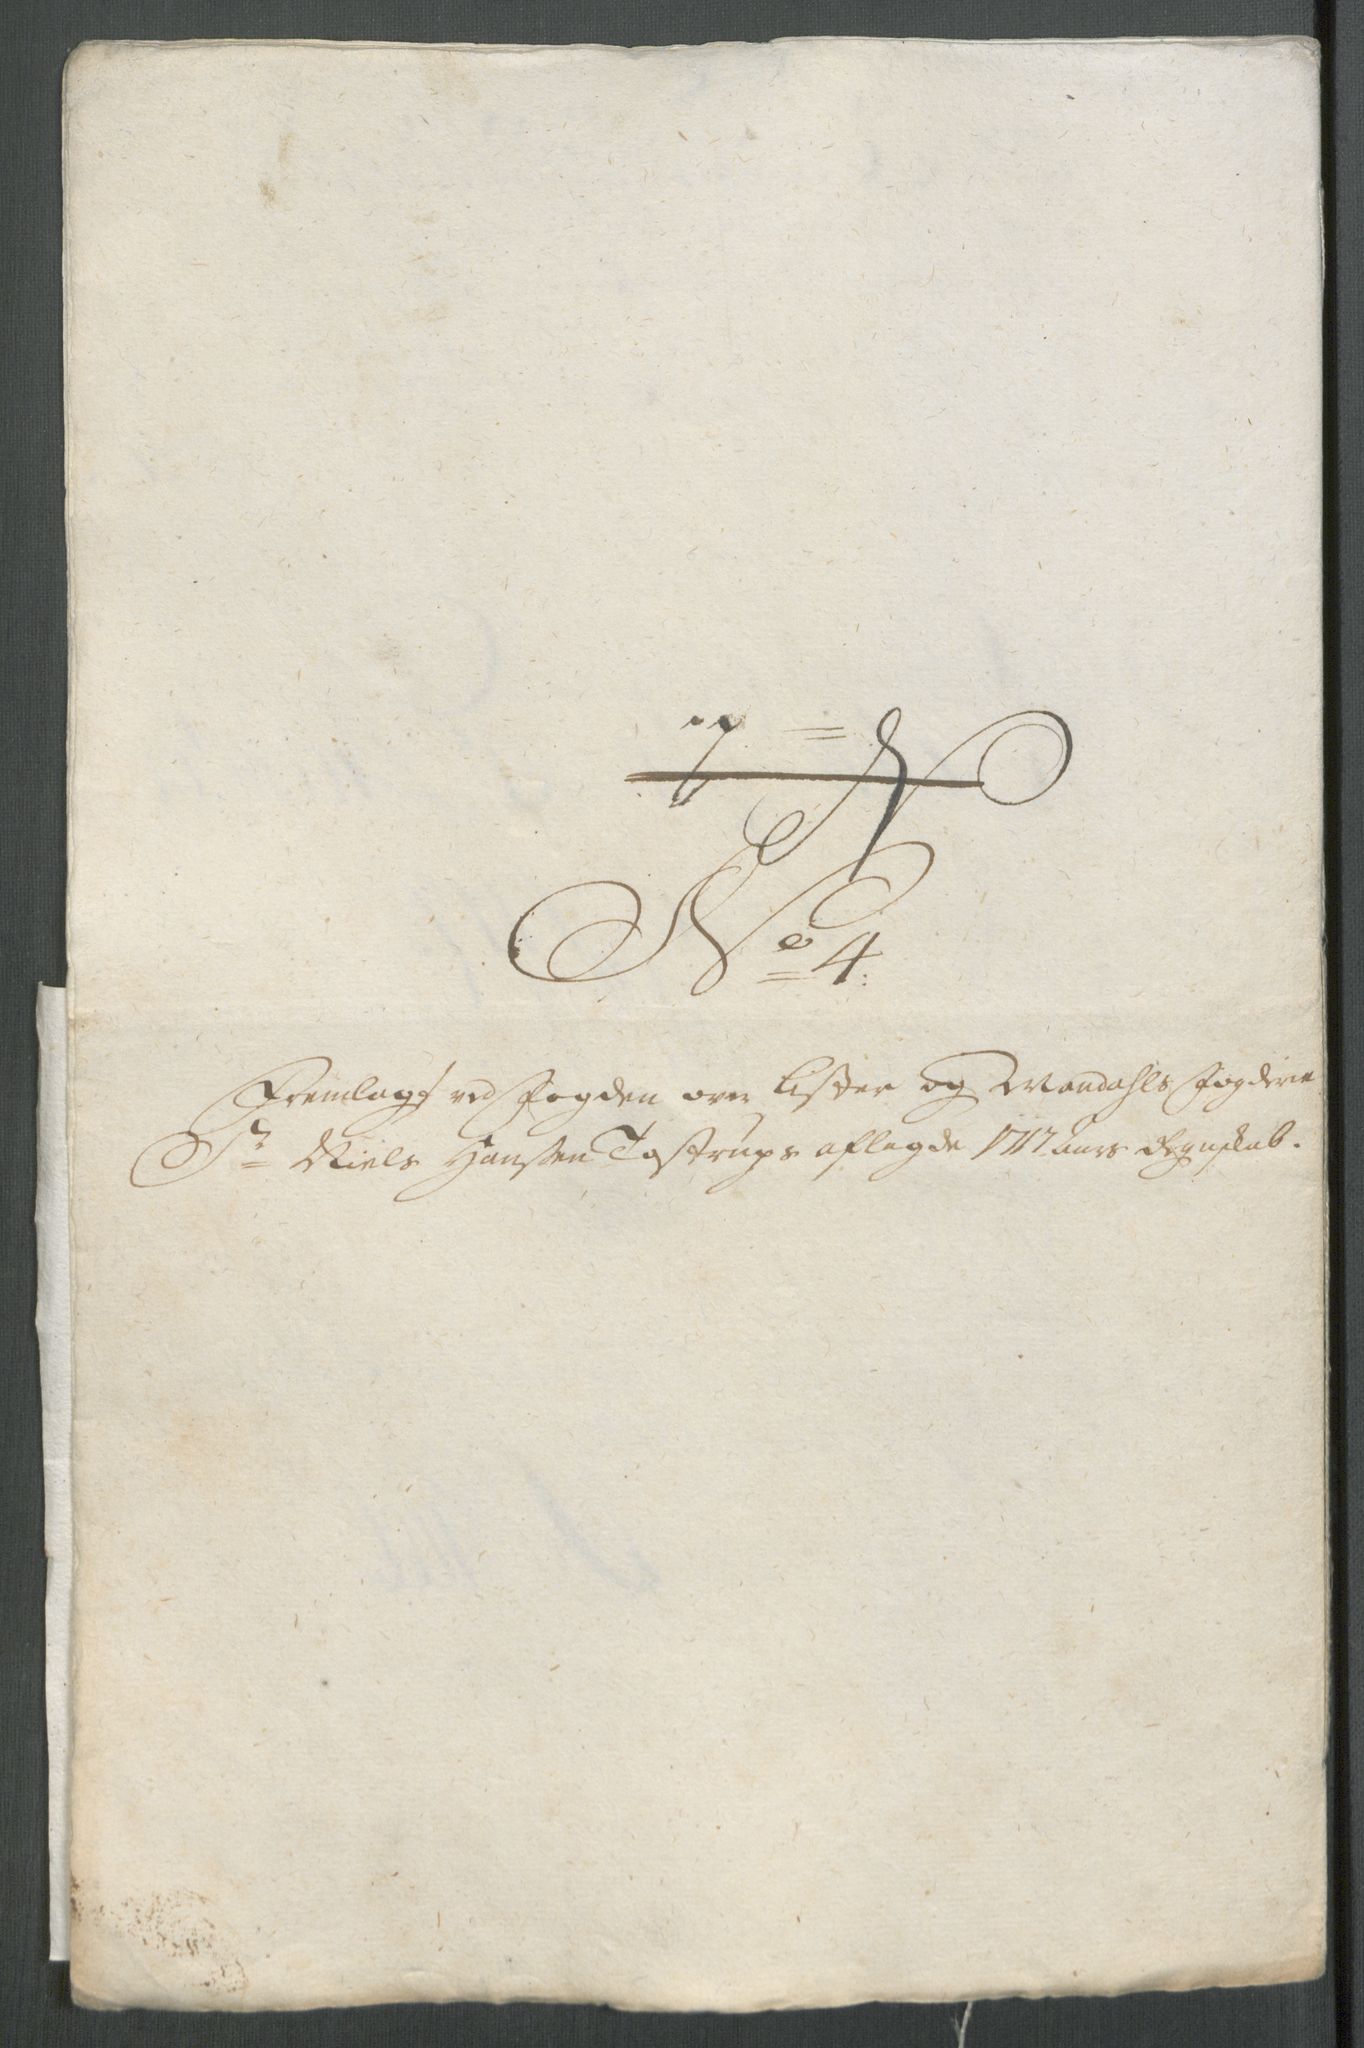 No 4:
Fremlagt ved Fogden over Lister og Mandahls Fogderie
Sr Niels Hansen Tostrups aflegde 1717 aars Regnskab.